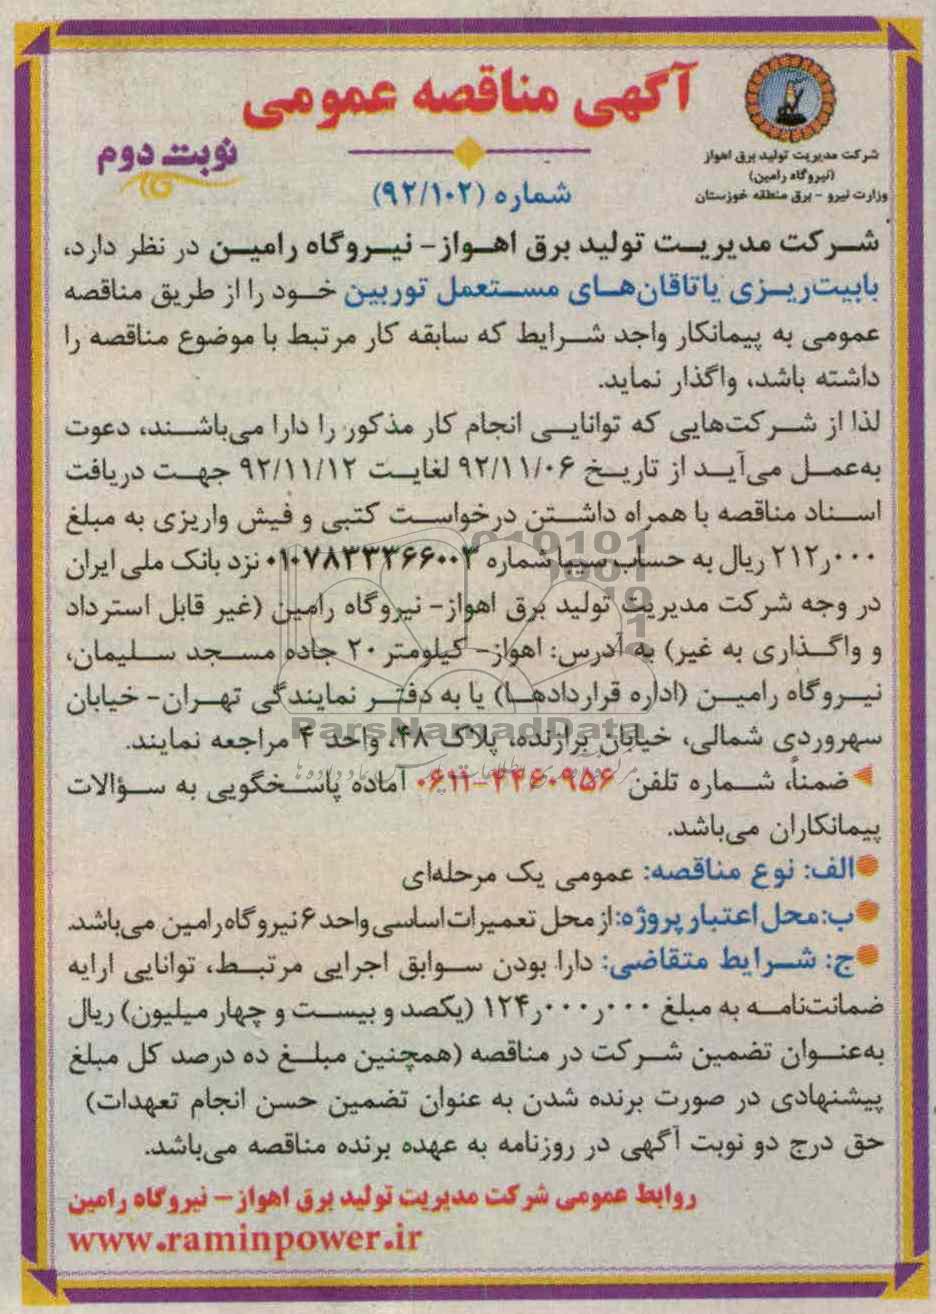 آگهی مناقصه عمومی
نوبت دوم
شماره (۹۲/۱۰۲)
شرکت مدیریت تولید برق اهواز
(نیروگاه رامین)
وزارت نیرو - برق منطقه خوزستان
شرکت مدیریت تولید برق اهواز- نیروگاه رامین در نظر دارد،
بابیت‌ریزی یاتاقان‌های مستعمل توربین خود را از طریق مناقصه
عمومی به پیمانکار واجد شرایط که سابقه کار مرتبط با موضوع مناقصه را
داشته باشد، واگذار نماید.
لذا از شرکت‌هایی که توانایی انجام کار مذکور را دارا می‌باشند، دعوت
به‌عمل می‌آید از تاریخ ۹۲/۱۱/۰۶ لغایت ۹۲/۱۱/۱۲ جهت دریافت
اسناد مناقصه با همراه داشتن درخواست کتبی و فیش واریزی به مبلغ
۲۱۲ر۰۰۰ ریال به حساب سیبا شماره ۰۱۰۷۸۳۳۳۶۶۰۰۳ نزد بانک ملی ایران
در وجه شرکت مدیریت تولید برق اهواز- نیروگاه رامین (غیر قابل استرداد
و واگذاری به غیر) به آدرس: اهواز- کیلومتر ۲۰ جاده مسجد سلیمان،
نیروگاه رامین (اداره قراردادها) یا به دفتر نمایندگی تهران- خیابان
سهروردی شمالی، خیابان برازنده، پلاک ۴۸، واحد ۴ مراجعه نمایند.
ضمناً، شماره تلفن ۰۶۱۱-۴۴۶۰۹۵۶ آماده پاسخگویی به سؤالات
پیمانکاران می‌باشد.
الف: نوع مناقصه: عمومی یک مرحله‌ای
ب: محل اعتبار پروژه: از محل تعمیرات اساسی واحد ۶ نیروگاه رامین می‌باشد.
ج: شرایط متقاضی: دارا بودن سوابق اجرایی مرتبط، توانایی ارایه
ضمانت‌نامه به مبلغ ۱۲۴ر۰۰۰ر۰۰۰ (یکصد و بیست و چهار میلیون) ریال
به‌عنوان تضمین شرکت در مناقصه (همچنین مبلغ ده درصد کل مبلغ
پیشنهادی در صورت برنده شدن به عنوان تضمین حسن انجام تعهدات)
حق درج دو نوبت آگهی در روزنامه به عهده برنده مناقصه می‌باشد.
روابط عمومی شرکت مدیریت تولید برق اهواز- نیروگاه رامین
www.raminpower.ir
ParsNamadData